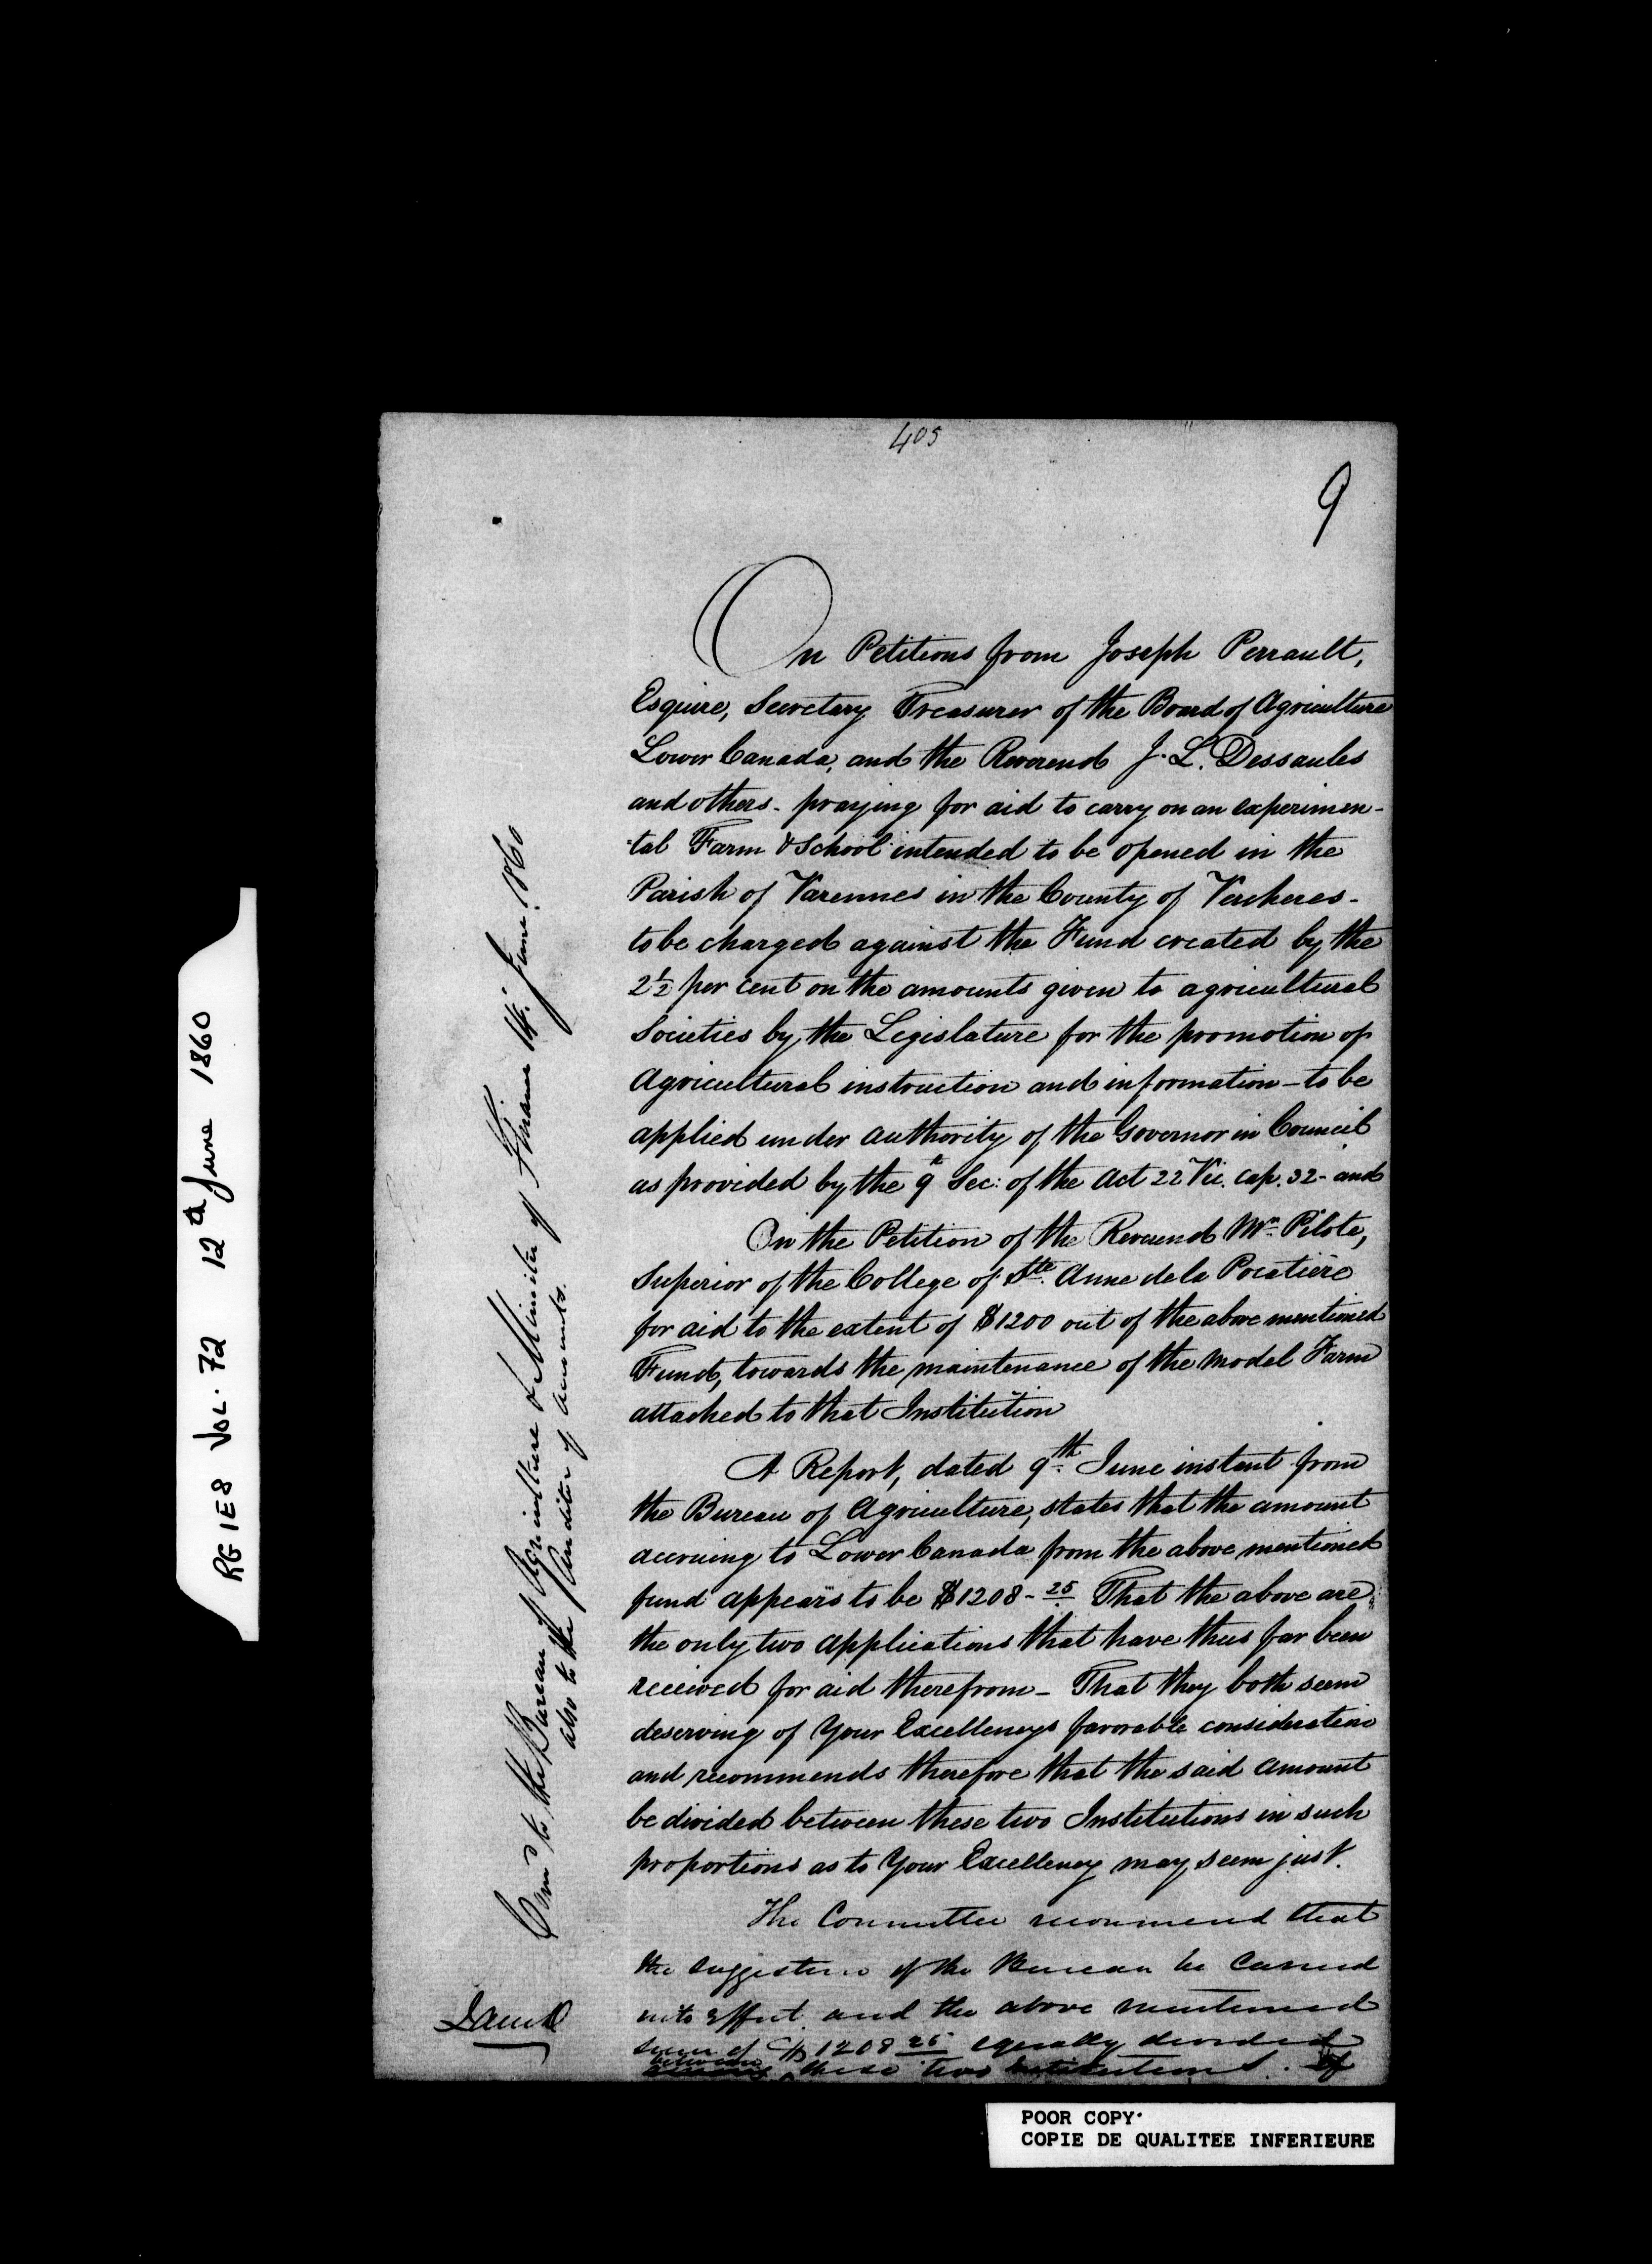 405
9
On Petitions from Joseph Perrault,
Esquire, Secretary Treasurer of the Board of Agriculture
Lower Canada, and the Reverend J. L. Dessaules
and others - praying for aid to carry on an experimen-
-tal Farm & School intended to be opened in the
Parish of Varennes in the County of Vercheres -
to be charged against the Fund created by the
2½ per cent on the amounts given to agricultural
Societies by the Legislature for the promotion of
Agricultural instruction and information - to be
applied under authority of the Governor in Council
as provided by the 9th Sec: of the Act 22 Vic. cap. 32 - and
On the Petition of the Reverend Mr. Pilote,
Superior of the College of Ste. Anne de la Pocatière
for aid to the extent of $1200 out of the above mentioned
Fund, towards the maintenance of the Model Farm
attached to that Institution
A Report, dated 9th. June instant from
the Bureau of Agriculture, states that the amount
accruing to Lower Canada from the above mentioned
fund appears to be $1208-25 That the above are
the only two applications that have thus far been
received for aid therefrom - That they both seem
deserving of Your Excellencys favorable consideration
and recommends therefore that the said amount
be divided between these two Institutions in such
proportions as to Your Excellency may seem just.
The Committee recommend that
the suggestion of the Bureau be carried
into effect and the above mentioned
sum of $1208 25 equally divided
between these two Institutions.
Com'd to the Bureau of Agriculture & Minister of Finance 14. June 1860
also to the Auditor of accounts.
RG 1E8 VOL. 72 12th June 1860
POOR COPY.
COPIE DE QUALITEE INFERIEURE